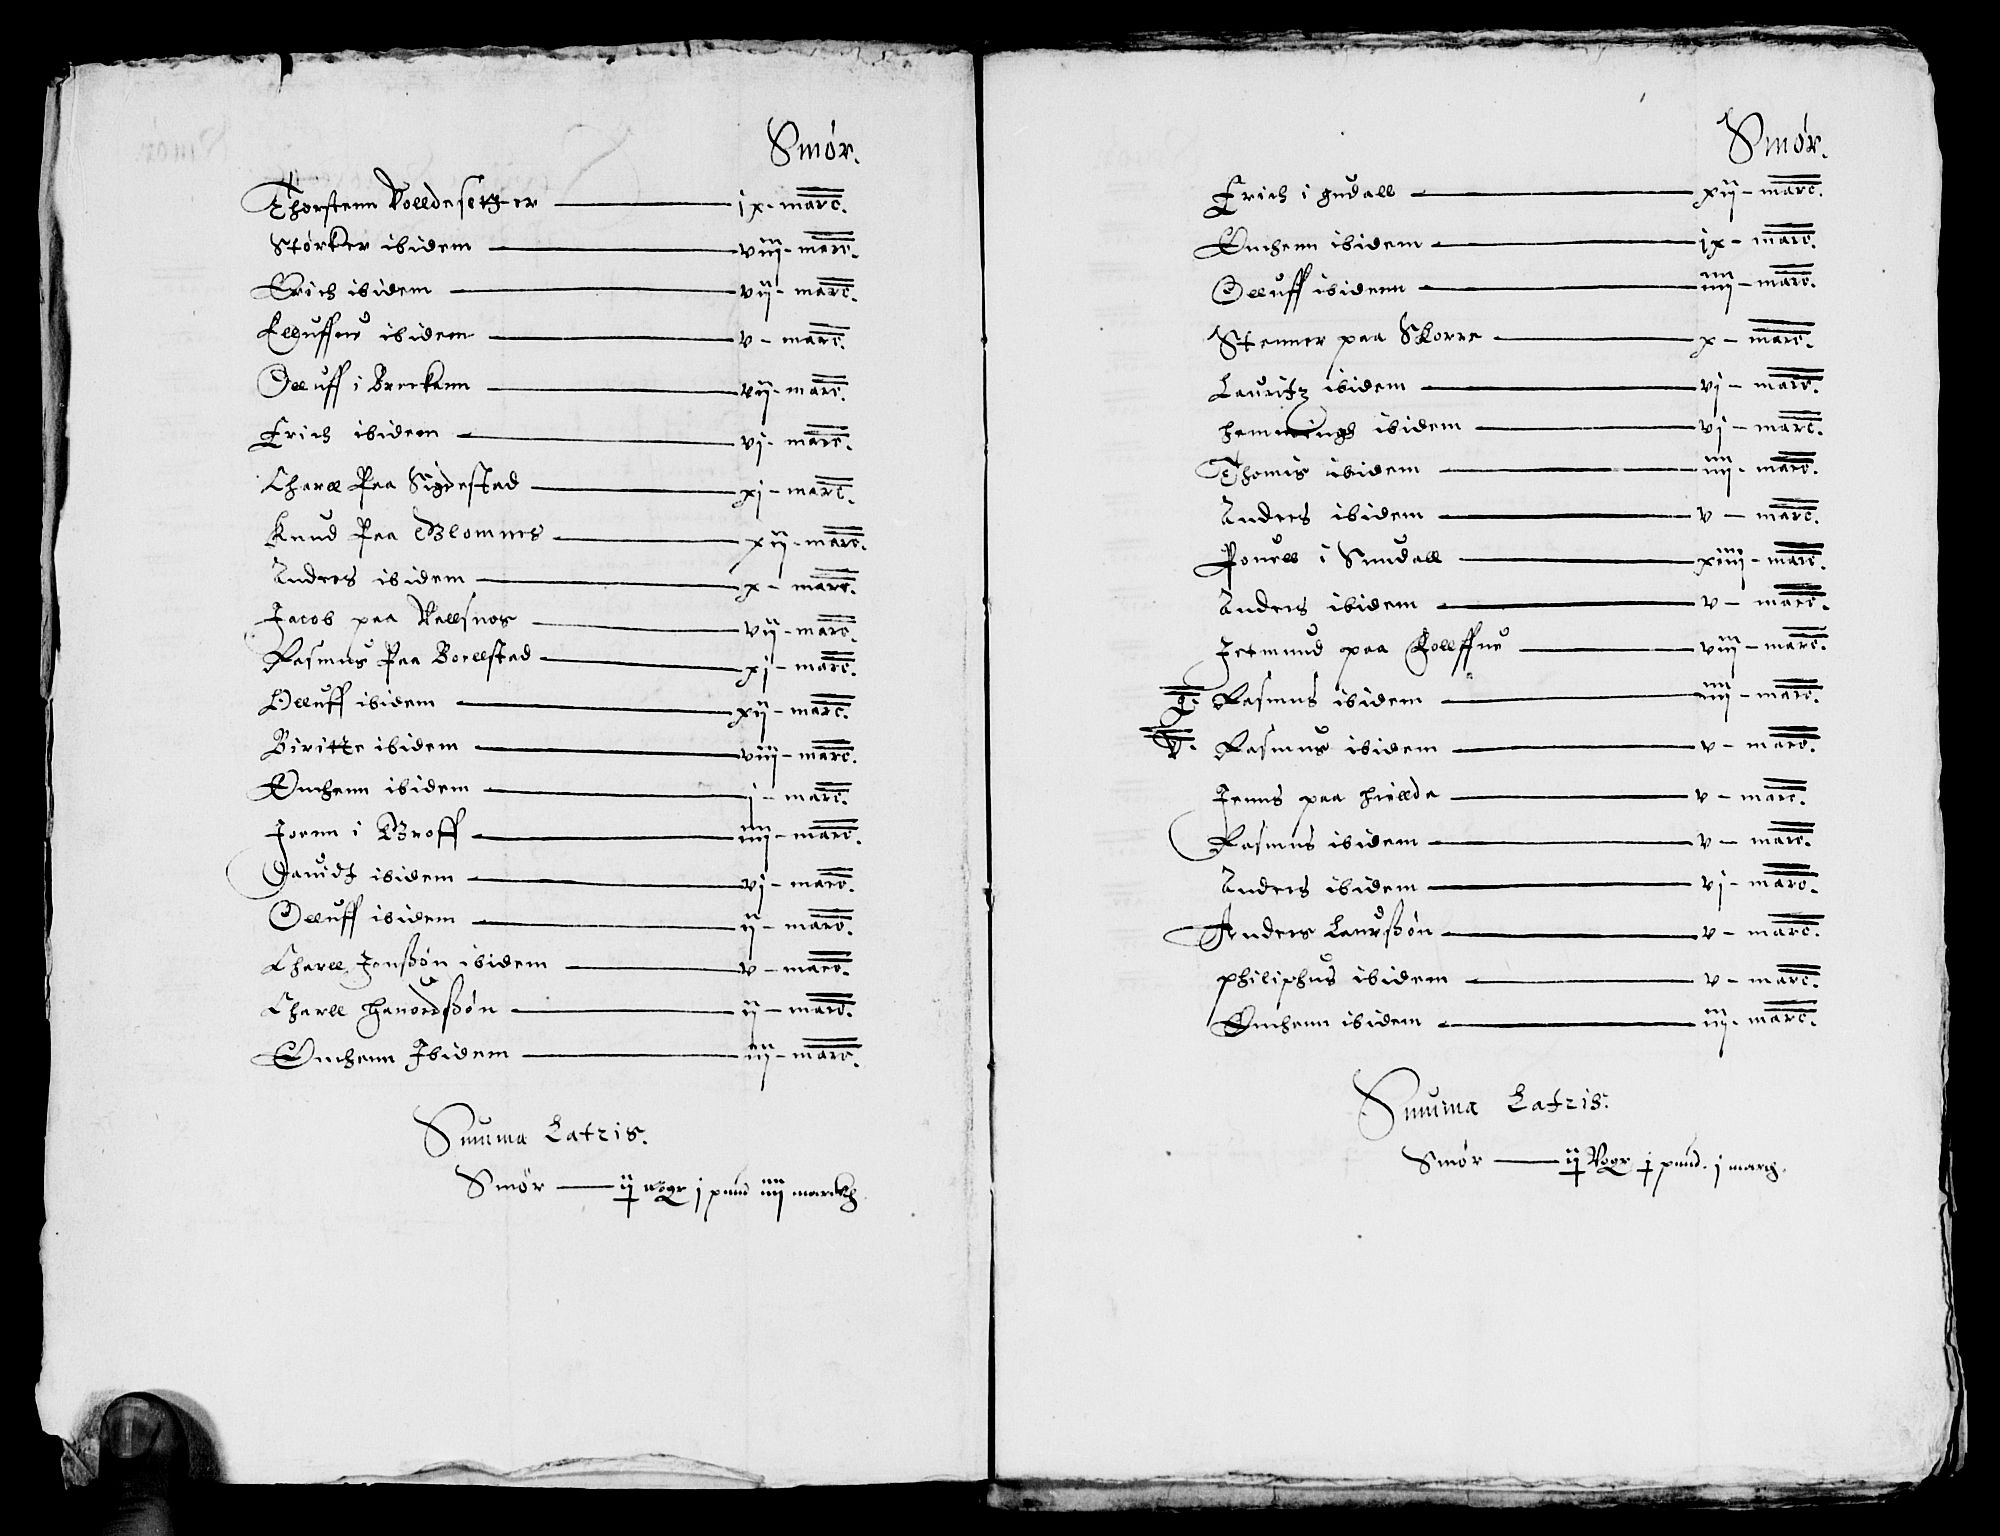 Smør.
Thorstenn Volldesetzer ix - marc.
Størker ibidem viij - marc.
Erich ibidem vij - marc.
Elluffue ibidem v - marc.
Olluff i Breckann vij - marc.
Erich ibidem vj - marc.
Charll Paa Sigdestad xj - marc.
Knud Paa Blomnes xij - marc.
Anders ibidem x - marc.
Jacob paa Vallsnes vij - marc.
Rasmus Paa Borllstad xj - marc.
Olluff ibidem xij - marc.
Biritte ibidem viij - marc.
Enchenn ibidem j - marc.
Joenn i Groff iiij - marc.
Dauidt ibidem vj - marc.
Olluff ibidem ij - marc.
Charll Jenßøn ibidem v - marc.
Charll ibidem ij - marc.
Enchenn Ibidem iij - marc.
Summa Latris.
Smør ij woger j pund iiij marckh
Smør.
Erich i gudall xij - marc.
Enchenn ibidem ix - marc.
Olluff ibidem iiij - marc.
Stenner paa Skorre x - marc.
Lauritz ibidem vj - marc.
hemmingh ibidem vj - marc.
Thomis ibidem iiij - marc.
Anders ibidem v - marc.
Pouell i Sundall xiiij - marc.
Anders ibidem v - marc.
Jermund paa Follffue viij - marc.
Rasmus ibidem iiij - marc.
Rasmus ibidem v - marc.
Jenns paa hiellde v - marc.
Rasmus ibidem v - marc.
Anders ibidem vj - marc.
Anders Laurßøn v - marc.
philiphus ibidem v - marc.
Enchenn ibidem iij - marc.
Summa Latris.
Smør ij Voger j pund. j marg.